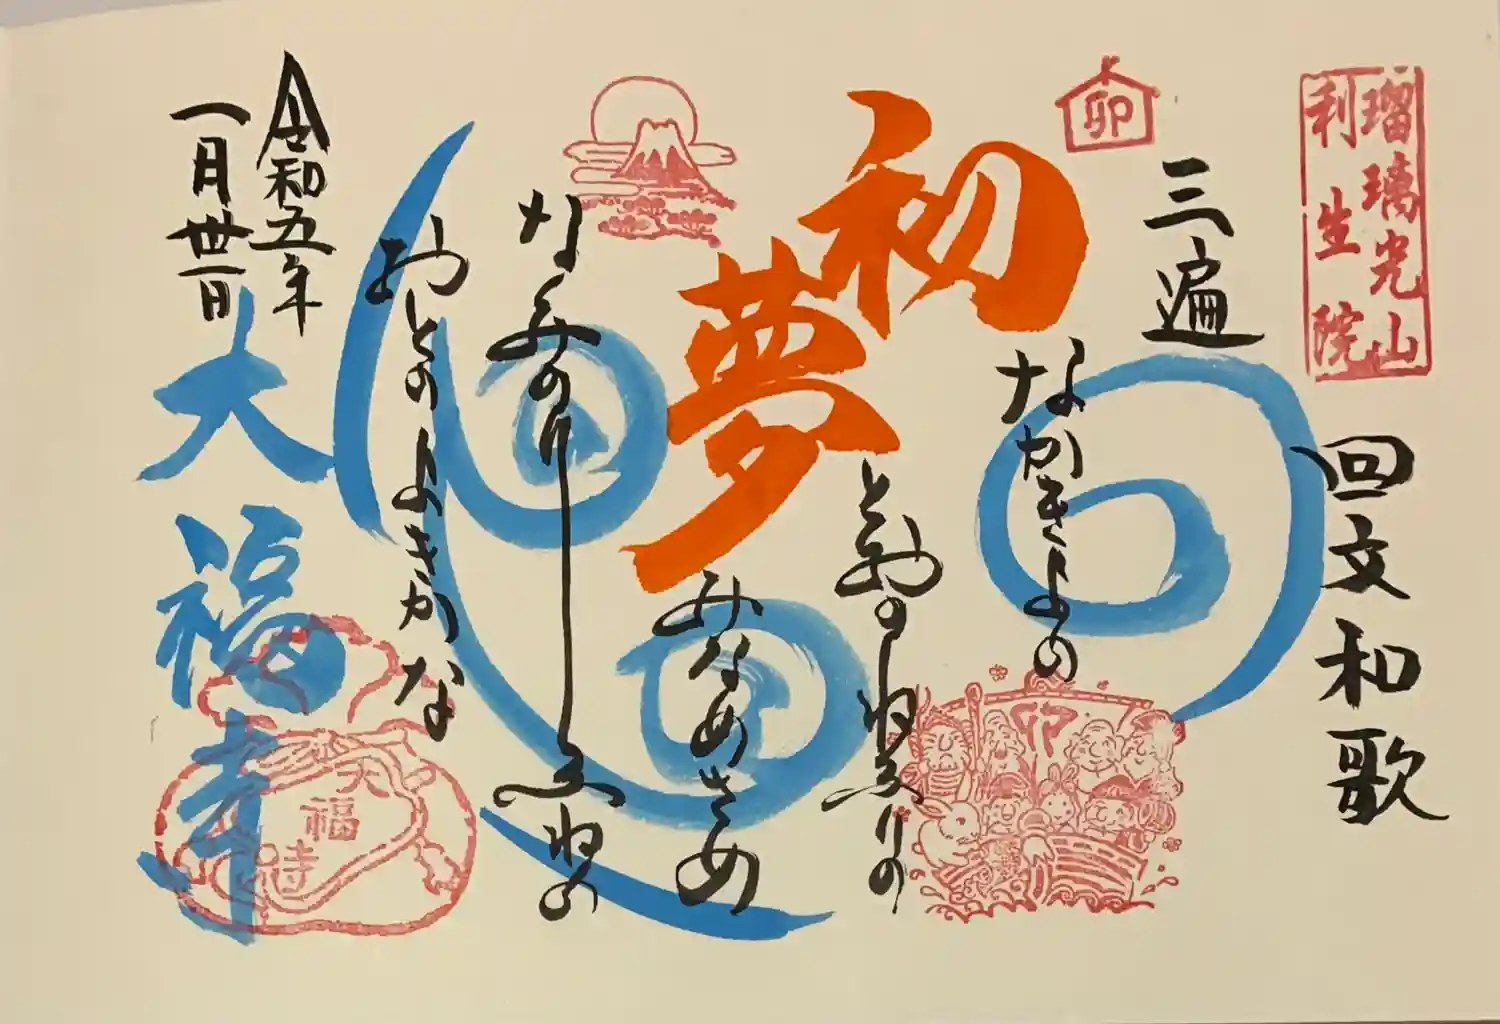 瑠璃光山
利生院
回文和歌
三遍
卯
なかきよの
とおのねふりの
みなめさめ
なみのりふねの
おとのよきかな
初夢
卯
令和五年
一月丗一日
大福寺
大福寺